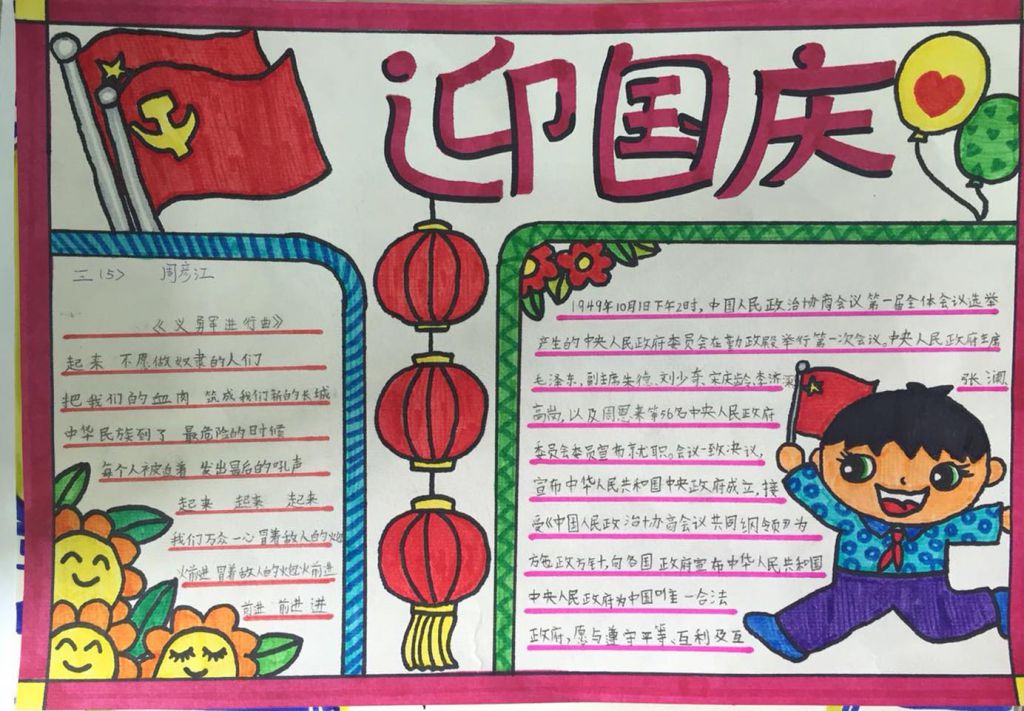 迎国庆
三(5) 周彦江
《义勇军进行曲》
起来 不愿做奴隶的人们
把我们的血肉 筑成我们新的长城
中华民族到了 最危险的时候
每个人被迫着 发出最后的吼声
起来 起来 起来
我们万众一心冒着敌人的炮
火前进 冒着敌人的炮火前进
前进 前进 进
1949年10月1日下午2时,中国人民政治协商会议第一届全体会议选举
产生的中央人民政府委员会在勤政殿举行第一次会议。中央人民政府主席
毛泽东,副主席朱德、刘少奇、宋庆龄、李济深 张澜
高岗,以及周恩来等56名中央人民政府
委员会委员宣布就职,会议一致决议,
宣布中华人民共和国中央政府成立,接
受《中国人民政治协商会议共同纲领》为
施政方针,向各国政府宣布中华人民共和国
中央人民政府为中国唯一合法
政府,愿与遵守平等、互利及互